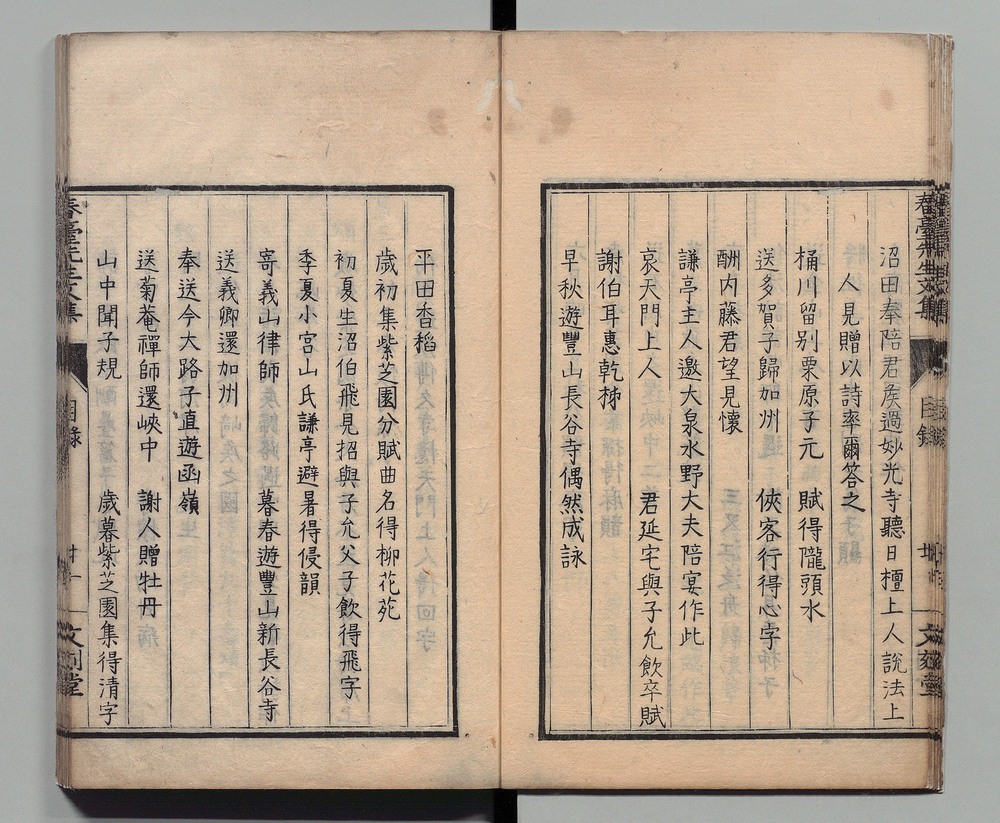 沼田奉陪君矦過妙光寺聽日檀上人說法上
人見贈以詩率爾答之
桶川留别栗原子元　賦得隴頭水
送多賀子歸加州　俠客行得心字
酬内藤君望見懷
謙亭主人邀大泉水野大夫陪宴作此
哀天門上人　君延宅與子允飲卒賦
謝伯耳惠乾柹
早秋遊豐山長谷寺偶然成詠
平田香稻
歲初集紫芝園分賦曲名得柳花苑
初夏生沼伯飛見招與子允父子飲得飛字
季夏小宮山氏謙亭避暑得侵韻
寄義山律師　暮春遊豐山新長谷寺
送義卿還加州
奉送今大路子直遊函嶺
送菊菴禪師還峽中　謝人贈牡丹
山中聞子規　歲暮紫芝園集得清字
春臺先生文集
目錄